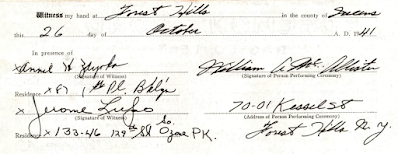 Witness my hand at Forest Hills in the county of Queens
this 26 day of October A. D. 1941
In presence of
x Annie W William C. Mc Alister
(Signature of Witness) (Signature of Person Performing Ceremony)
Residence x 87 1st Pl. Bklyn
x Jerome Lupo 70-01 Kessel St
(Signature of Witness) (Address of Person Performing Ceremony)
Residence x 133-46 129th St So. Ozone PK. Forest Hills N. Y.